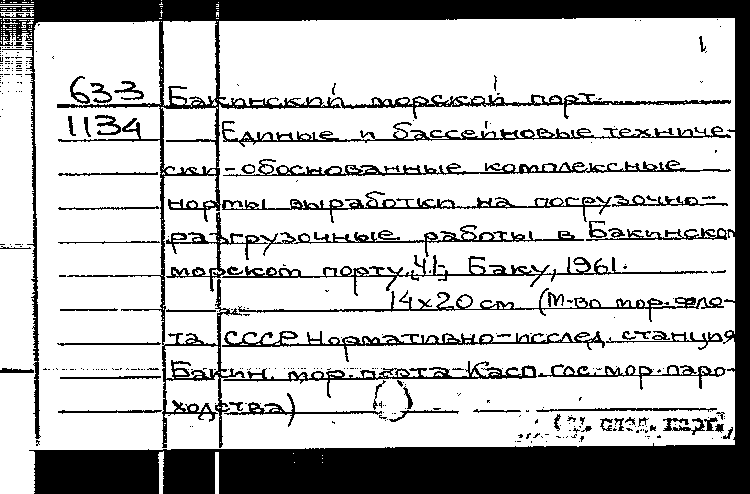 1
633 Бакинский морской порт.
1134 Единые и бассейновые техниче-
ски-обоснованные комплексные
нормы выработки на погрузочно-
разгрузочные работы в Бакинском
морском порту.[Ч1] Баку, 1961.
14х20 см (М-во мор. фло-
та СССР Нормативно-исслед. станция
Бакин. мор. порта Касп. гос. мор. паро-
ходства)
(См. след. карт.)